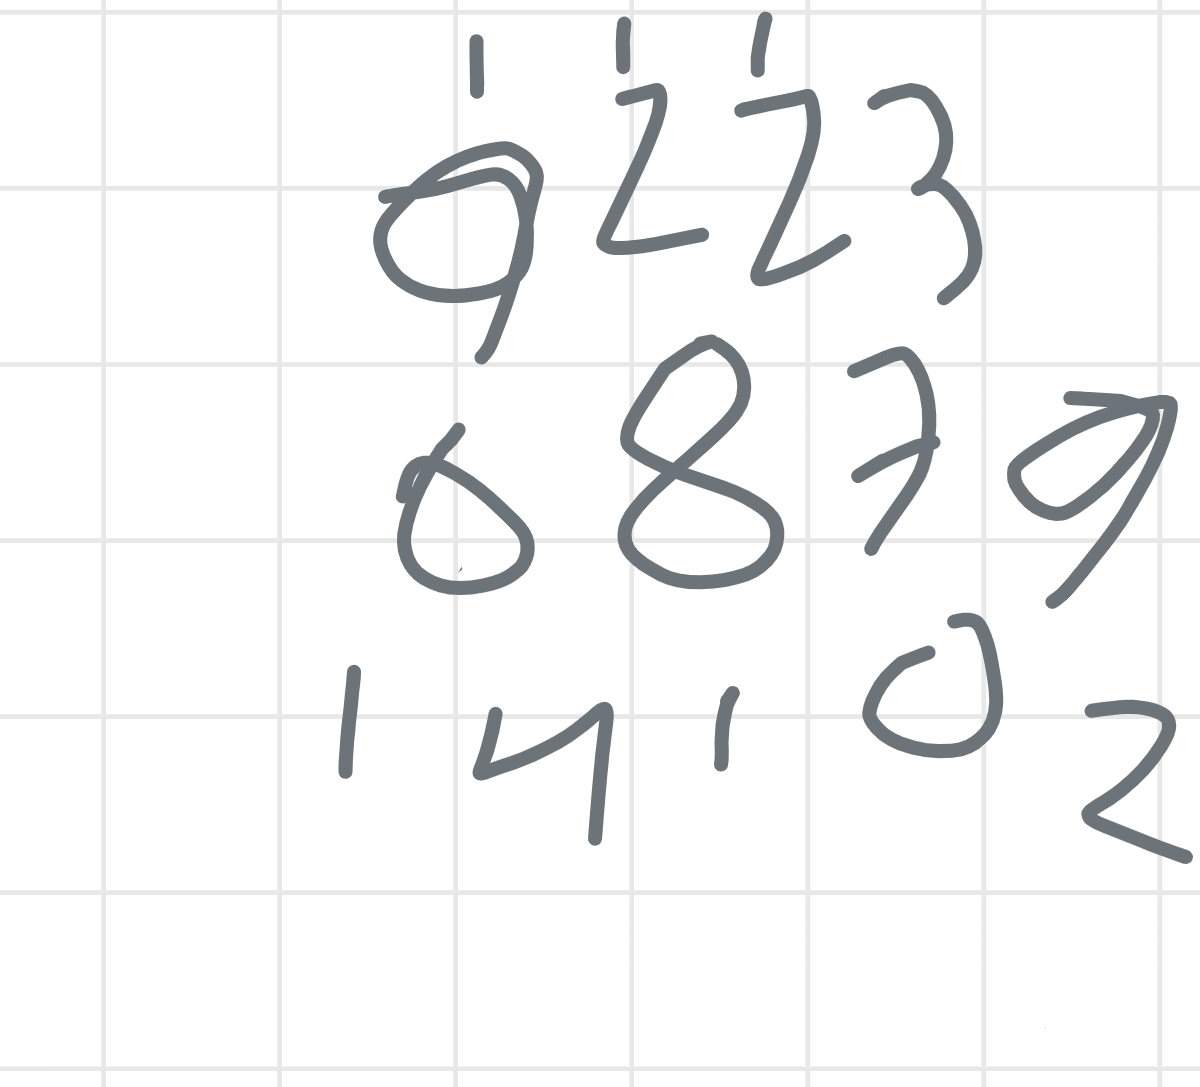 1 1 1
9223
6879
14102